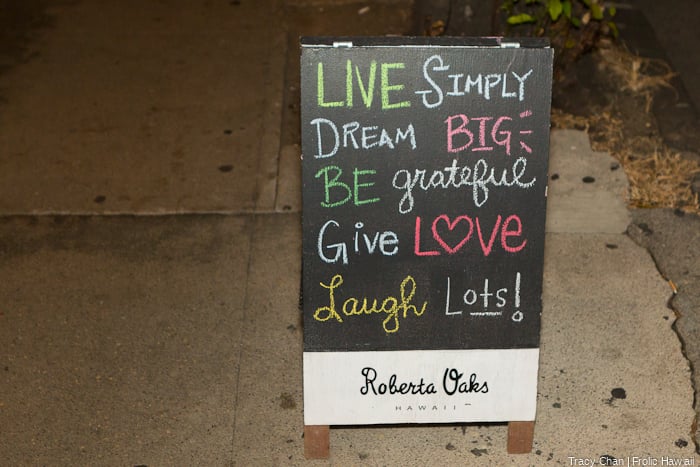 LIVE SIMPLY
DREAM BIG
BE grateful
Give LOVE
Laugh Lots!
Roberta Oaks
HAWAII
Tracy Chan | Frolic Hawaii